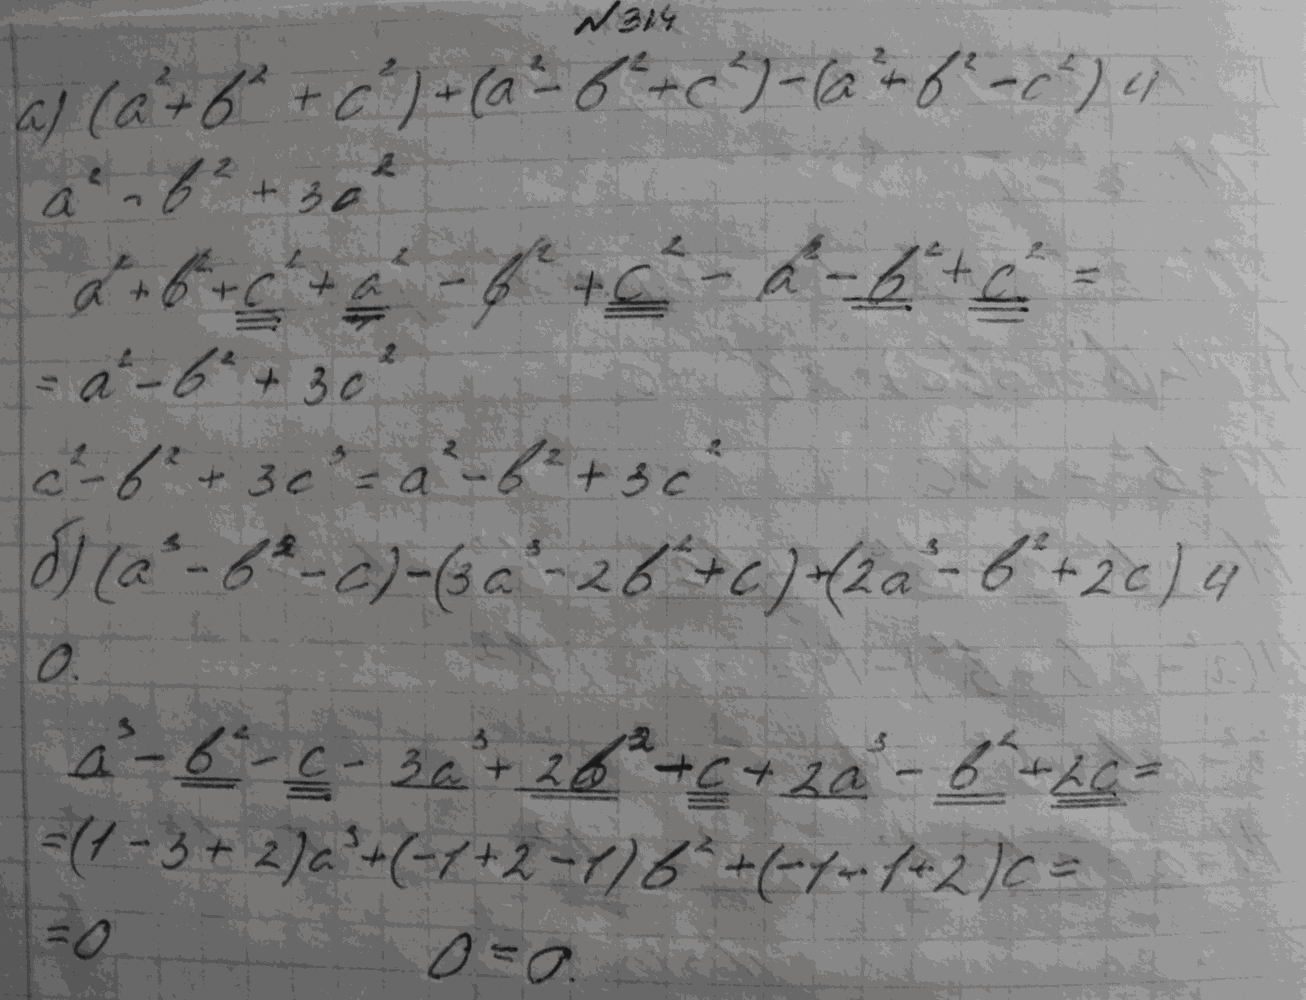 №314
а) (a² + b² + c²) + (a² - b² + c²) - (a² + b² - c²) и
a² - b² + 3c²
a² + b² + c² + a² - b² + c² - a² - b² + c² =
= a² - b² + 3c²
c² - b² + 3c³ = a² - b² + 3c²
б) (a³ - b² - c) - (3a³ - 2b² + c) + (2a³ - b² + 2c) и
0.
a³ - b² - c - 3a³ + 2b² + c + 2a³ - b² + 2c =
= (1 - 3 + 2)a³ + (-1 + 2 - 1)b² + (-1 - 1 + 2)c =
= 0    0 = 0.